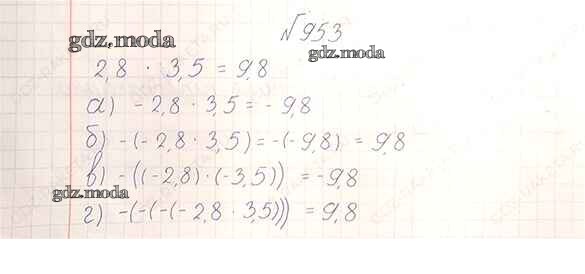 №953
gdz.moda
gdz.moda
2,8 · 3,5 = 9,8
а) - 2,8 · 3,5 = - 9,8
б) -(- 2,8 · 3,5) = -(- 9,8) = 9,8
в) -((-2,8) · (-3,5)) = -9,8
gdz.moda
г) -(-(-(-2,8 · 3,5))) = 9,8